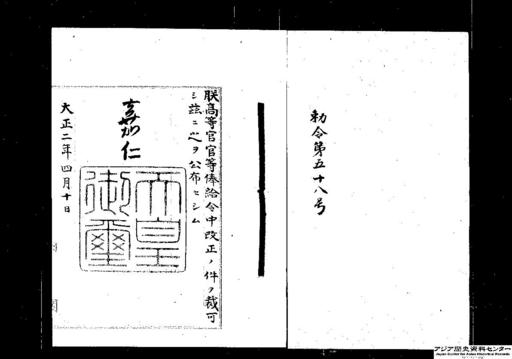 勅令第五十八号
朕高等官官等俸給令中改正ノ件ヲ裁可
シ茲ニ之ヲ公布セシム
嘉仁
天皇
御璽
大正二年四月十日
アジア歴史資料センター
Japan Center for Asian Historical Records